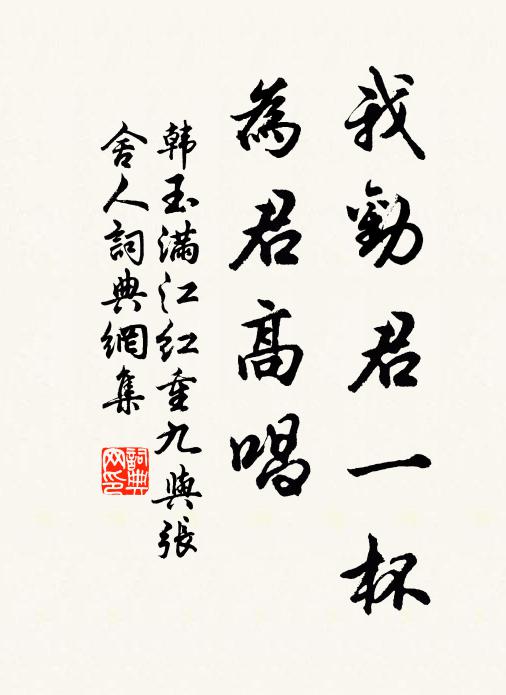 我勸君一杯
為君高唱
韩玉滿江紅重九與張
舍人詞典網集
詞典網印